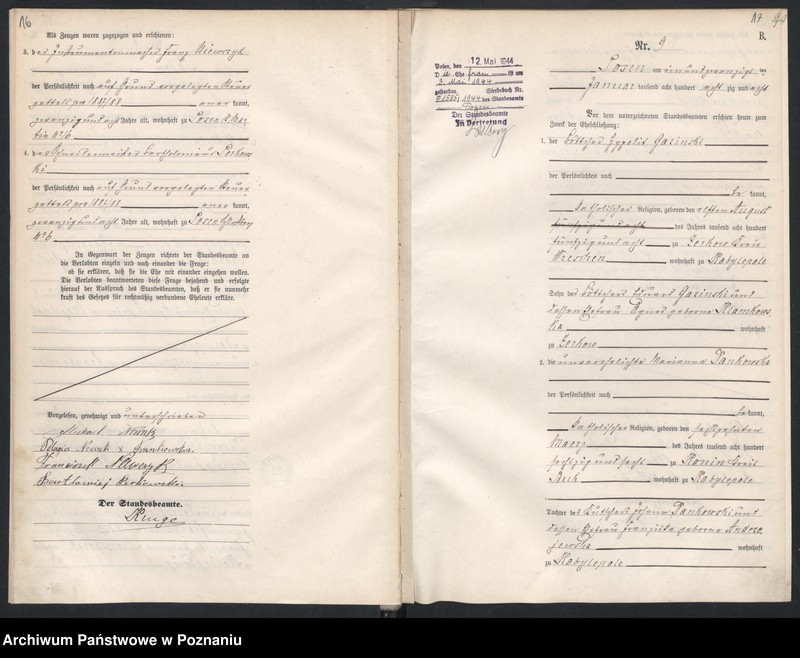 16
Als Zeugen waren zugezogen und erschienen:
3. der Instrumentenmacher Franz
der Persönlichkeit nach auf Grund vorgelegten Steuer
zettels pro 1887/88 anerkannt,
zwanzig und acht Jahre alt, wohnhaft zu Posen St. Mar
tin No 6
4. der Schneidermeister Bartholomäus
ki
der Persönlichkeit nach auf Grund vorgelegten Steuer
zettels pro 1887/88 anerkannt,
zwanzig und acht Jahre alt, wohnhaft zu Posen
No 6
In Gegenwart der Zeugen richtete der Standesbeamte an
die Verlobten einzeln und nach einander die Frage:
ob sie erklären, daß sie die Ehe mit einander eingehen wollen.
Die Verlobten beantworteten diese Frage bejahend und erfolgte
hierauf der Ausspruch des Standesbeamten, daß er sie nunmehr
kraft des Gesetzes für rechtmäßig verbundene Eheleute erkläre.
Vorgelesen, genehmigt und unterschrieben
Michael
Pelagia Nowak
Franciszek
Bartłomiej
Der Standesbeamte.
17
B.
Nr. 9
Posen am ein und zwanzigsten
Januar tausend acht hundert acht zig und acht
Vor dem unterzeichneten Standesbeamten erschienen heute zum
Zweck der Eheschließung:
1. der Böttcher Hypolit Gazinski
der Persönlichkeit nach
be kannt,
katholischer Religion, geboren den elften August
des Jahres tausend acht hundert
fünfzig und acht zu Zerkow Kreis
Wreschen wohnhaft zu Kobylepole
Sohn des Böttchers Eduard Gazinski und
dessen Ehefrau Agnes geborne
ka wohnhaft
zu Zerkow
2. die unverehelichte Marianna Pankowska
der Persönlichkeit nach
bekannt,
katholischer Religion, geboren den sechszehnten
Maerz des Jahres tausend acht hundert
sechszig und sechs zu Konin Kreis
Buk wohnhaft zu Kobylepole
Tochter des Kutschers Johann Pankowski und
dessen Ehefrau Franziska geborne Andrze
jewska wohnhaft
zu Kobylepole
Posen, den 12. Mai 1944
D. Ehefrau ist am
3. Mai 1944
gestorben. Sterbebuch Nr.
1944 des Standesamts
Posen
Der Standesbeamte
In Vertretung
Archiwum Państwowe w Poznaniu